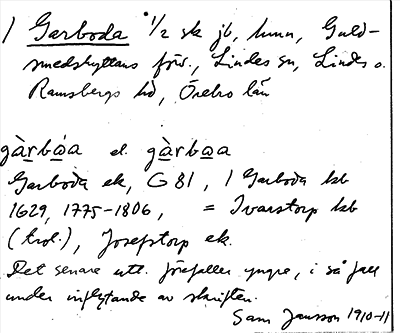 1 Garboda °1/2 sk jb, hmn, Guld-
smedshyttans förv., Lindes sn, Linde o.
Ramsbergs hd, Örebro län
gàrbòa el. gàrbòa
Garboda ek, G 81, 1 Garboda ksb
1629, 1775-1806, = Ivarstorp ksb
(trol.), Josefstorp ek.
Det senare utt. förefaller yngre, i så fall
under inflytande av skriften.
Sam Jansson 1910-11